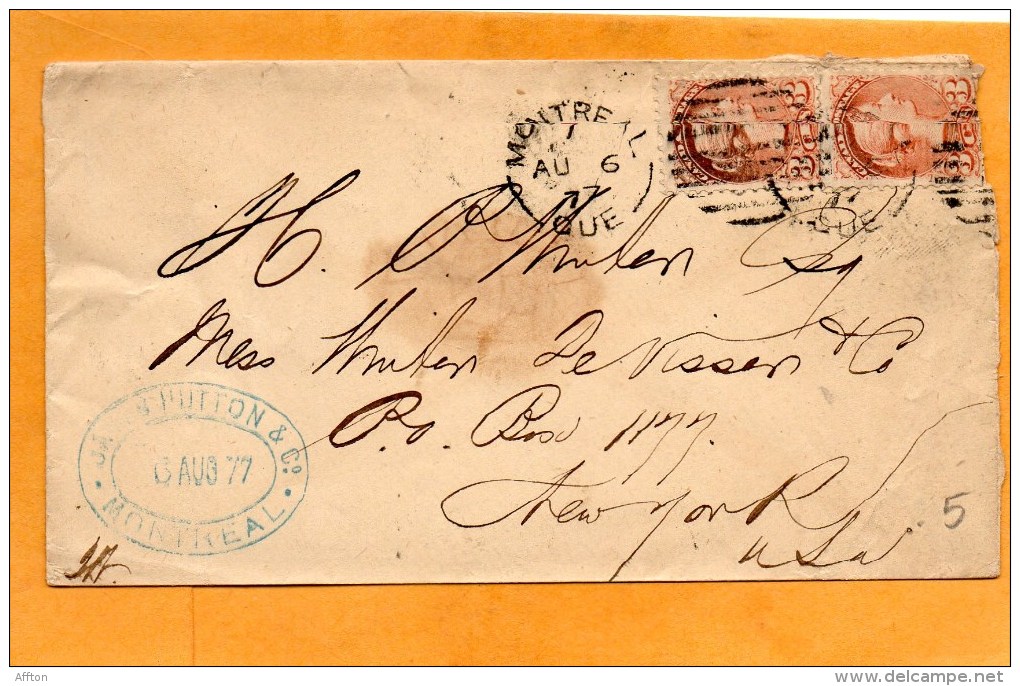 MONTREAL
1
AU 6
77
QUE
QUE
3 CTS 3
H. P. Esq
Mess De Vissen & Co
P.O. Box 1177.
New York
USa
HUTTON & Co.
6 AUG 77
MONTREAL
5
Affton
www.delcampe.net